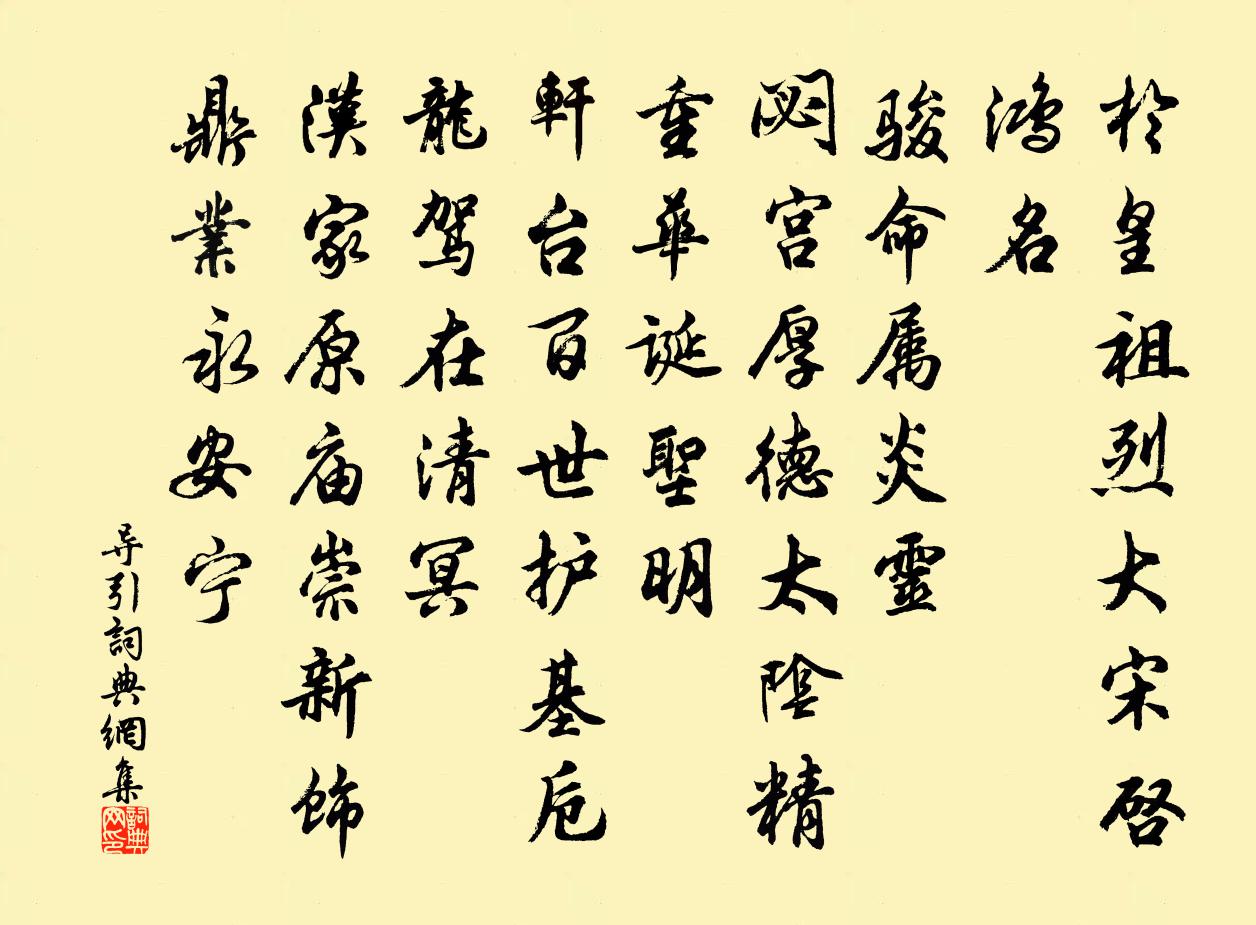 於皇祖烈大宋啓
鸿名
骏命属炎靈
閟宫厚德太陰精
重華誕聖明
軒台百世护基扃
龍驾在清冥
漢家原庙崇新饰
鼎業永安宁
导引詞典網集
詞典网印